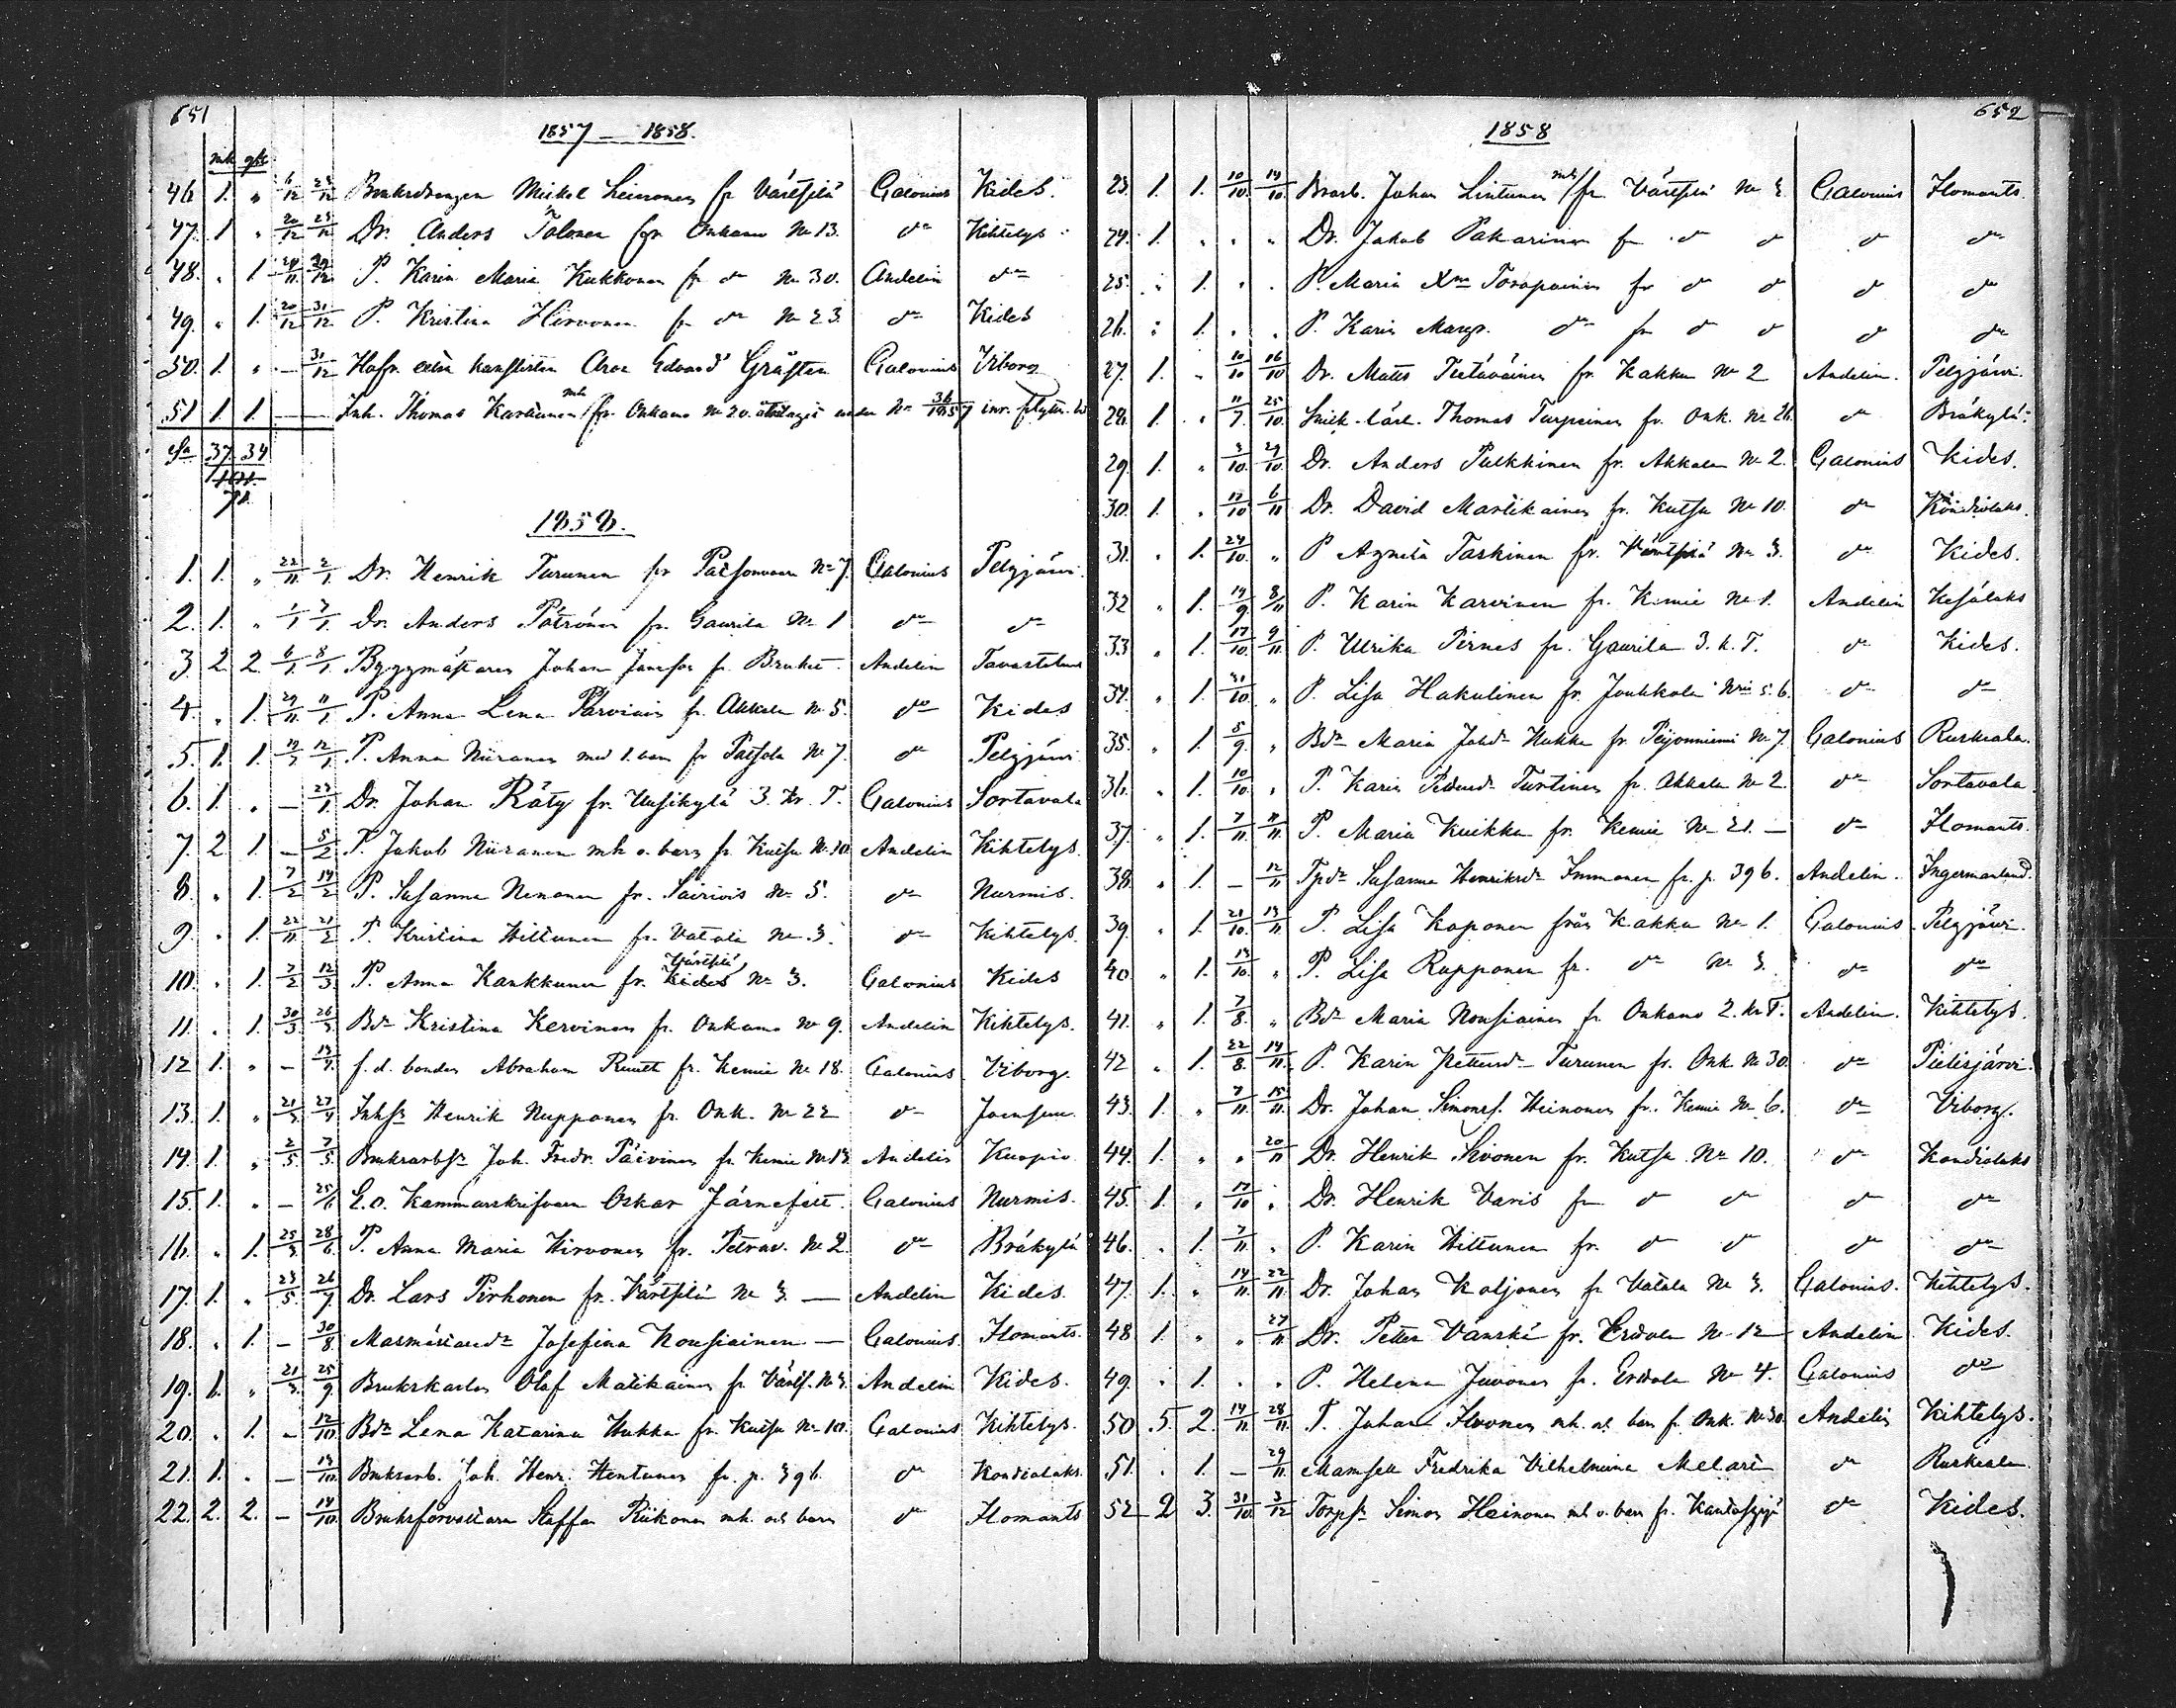 651
1857 – 1858.
mk qk
46 1. " 6/12 23/12 Bruksdrengen Mickel Leinonen fr Värtsilä Calonius Kides.
47. 1 " 20/12 23/12 Dr. Anders Tolonen fr Onkamo No 13. do Kihtelys
48. " 1. 24/11 29/12 P. Karin Maria Kukkonen fr do No 30. Andelin do
49. " 1. 20/12 31/12 P. Kristina Hirvonen fr do No 23. do Kides
50. 1. " – 31/12 Hofr. extra kanslisten Aron Edvard Gråsten Calonius Viborg
51 1. 1. – – Inh. Thomas Karttunen mh fr. Onkamo No 20. under No 36/1857 inr. flyttn.
Sa 37. 34
71.
1858.
1. 1. " 22/11 2/1 Dr. Henrik Turunen fr Patsonvaara No 7 Calonius Pelgjärvi.
2. 1. " 1/1 7/1 Dr. Anders Pätrönen fr. Gaurila No 1 do do
3 2 2 6/1 8/1 Byggmästaren Johan Jansson fr Bruket Andelin Tavastehus
4. " 1. 29/11 11/1 P. Anna Lena Parviain fr. Akkala No 5. do Kides
5. 1. 1. 12/1 P. Anna Niiranen med 1. barn fr Patsola No 7. do Pelgjärvi
6. 1. " – 23/1 Dr. Johan Räty fr. Uusikylä 3. Kr. T. Calonius Sortavala
7. 2 1. – 5/2 T. Jakob Niiranen mh o. barn fr. Kutsu No 10 Andelin Kihtelys.
8. " 1. 7/2 14/2 P. Susanna Nenonen fr. Sairivis No 5. do Nurmis.
9. " 1. 22/11 21/2 P. Kristina Hiltunen fr. Vatala No 3. do Kihtelys.
10. " 1. 7/2 12/3 P. Anna Kankkunen fr. Kides Värtsilä No 3. Calonius Kides
11. " 1. 30/3 26/3 Bdr Kristina Kervinen fr. Onkamo No 9. Andelin Kihtelys.
12 1. " – 14/4 f.d. bonden Abraham Ruuth fr. Kemie No 18. Calonius Viborg.
13. 1. " 21/3 27/4 Inhsn Henrik Nupponen fr. Onk. No 22 do Joensuu.
14. 1. " 2/5 7/5 Bruksarbsn Joh. Fredr. Päivinen fr. Kemie No 18 Andelin Kuopio
15. 1. " – 25/6 E.o. Kammarskrifvaren Oskar Järnefelt. Calonius Nurmis.
16. " 1. 25/3 28/6 P. Anna Maria Hirvonen fr. Petrav. No 2. do Bräkylä
17. 1. " 23/5 26/7 Dr. Lars Pirhonen fr. Värtsilä No 3. – Andelin Kides.
18. " 1. – 30/8 Masmästaredr Josefina Nousiainen – Calonius Ilomants.
19. 1. " 21/3 25/9 Brukskarlen Olof Matikainen fr. Värtsl. No 3. Andelin Kides.
20. " 1. – 12/10 Bdr Lena Katarina Hukka fr. Kutsu No 10. Calonius Kihtelys.
21. 1. " – 13/10 Bruksarb. Joh. Henr. Hentunen fr. p. 396. do Kondiolaks.
22. 2. 2. – 14/10 Bruksförvaltaren Staffan Riikonen mh. och barn do Ilomants
652
1858
23. 1. 1. 10/10 14/10 Brarb. Johan Lintunen mh fr. Värtsilä No 3. Calonius Ilomants.
24. 1. " " " Dr. Jakob Pakarinen fr do do do do
25. " 1. " " P. Maria Xna Toropainen fr do do do do
26. " 1. " " P. Karin Margr. do fr do do do do
27. 1. " 10/10 16/10 Dr. Matts Tietäväinen fr. Kakku No 2 Andelin. Pelgjärvi.
28. 1. " 11/7 25/10 Smedslärl. Thomas Turpeinen fr. Onk. No 26 do Bräkylä.
29. 1. " 3/10 29/10 Dr. Anders Pulkkinen fr. Akkala No 2. Calonius Kides.
30. 1. " 17/10 6/11 Dr. David Martikainen fr. Kutsu No 10. do Kondiolaks.
31. " 1. 24/10 " P Agneta Taskinen fr. Värtsilä No 3. do Kides.
32 " 1. 19/9 8/11 P. Karin Karvinen fr. Kemie No 1. Andelin Kesälaks
33 " 1. 17/10 9/11 P. Ulrika Pirnes fr. Gaurila 3. k. T. do Kides.
34. " 1. 31/10 " P. Lisa Hakulinen fr. Jouhkola No 5. 6. do do
35. " 1. 5/9 " Bdr Maria Johdr Hukka fr. Peijonniemi No 7. Calonius Ruskeala.
36. " 1. 10/10 " P. Karin Pedersdr Turtinen fr. Akkala No 2. do Sortavala.
37. " 1. 7/11 11/11 P. Maria Kuikka fr. Kemie No 21. – do Ilomants.
38. " 1. – 12/11 Tpdr Susanna Henriksdr Immonen fr. p. 396. Andelin. Ingermanland.
39. " 1. 21/10 13/11 P. Lisa Koponen från Kakku No 1. Calonius Pelgjärvi.
40 " 1. 17/10 " P. Lisa Rupponen fr. do No 3. do do
41. " 1. 7/8 " Bdr Maria Nousiainen fr. Onkamo 2. kr T. Andelin. Kihtelys.
42 " 1. 22/8 14/11 P. Karin Pettersdr Turunen fr. Onk. No 30 do Pielisjärvi.
43. 1. " 7/11 15/11 Dr. Johan Simonss. Heinonen fr. Kemie No 6. do Viborg.
44. 1. " " 20/11 Dr. Henrik Sivonen fr. Kutsu No 10. do Kondiolaks
45. 1. " 17/10 " Dr. Henrik Varis fr do do do do
46. " 1. 7/11 " P. Karin Hiltunen fr. do do do do
47. 1. " 14/11 22/11 Dr. Johan Koljonen fr Vatala No 3. Calonius. Kihtelys.
48. 1. " " 27/11 Dr. Petter Vänskä fr. Erdola No 12 Andelin Kides.
49. " 1. " " P. Helena Juvonen fr. Erdola No 4. Calonius do
50. 5 2. 14/11 28/11 T. Johan Ihvonen mh. och barn fr. Onk. No 30 Andelin Kihtelys.
51. " 1. – 29/11 Mamsell Fredrika Vilhelmina Melart do Ruskeala
52 2 3. 31/10 3/12 Torpsn Simon Heinonen mh o. barn fr. do Kides.